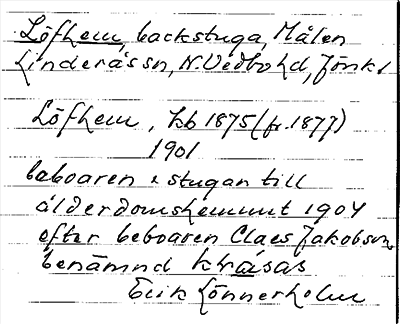 Löfhem, backstuga, Målen
Linderås sn, N.Vedbohd, Jönk l
Löfhem, hb 1875 (fr. 1877)
1901
beboaren & stugan till
ålderdomshemmet 1904
efter beboaren Claes Jakobson
benämnd kråsas
Erik Lönnerholm